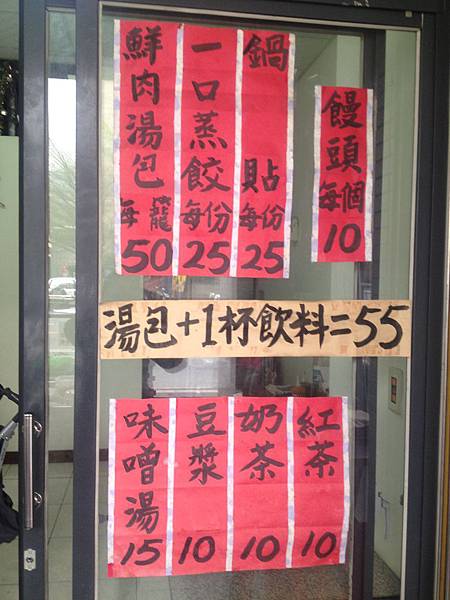 鮮肉湯包每籠50
一口蒸餃每份25
鍋貼每份25
饅頭每個10
湯包+1杯飲料=55
味噌湯15
豆漿10
奶茶10
紅茶10